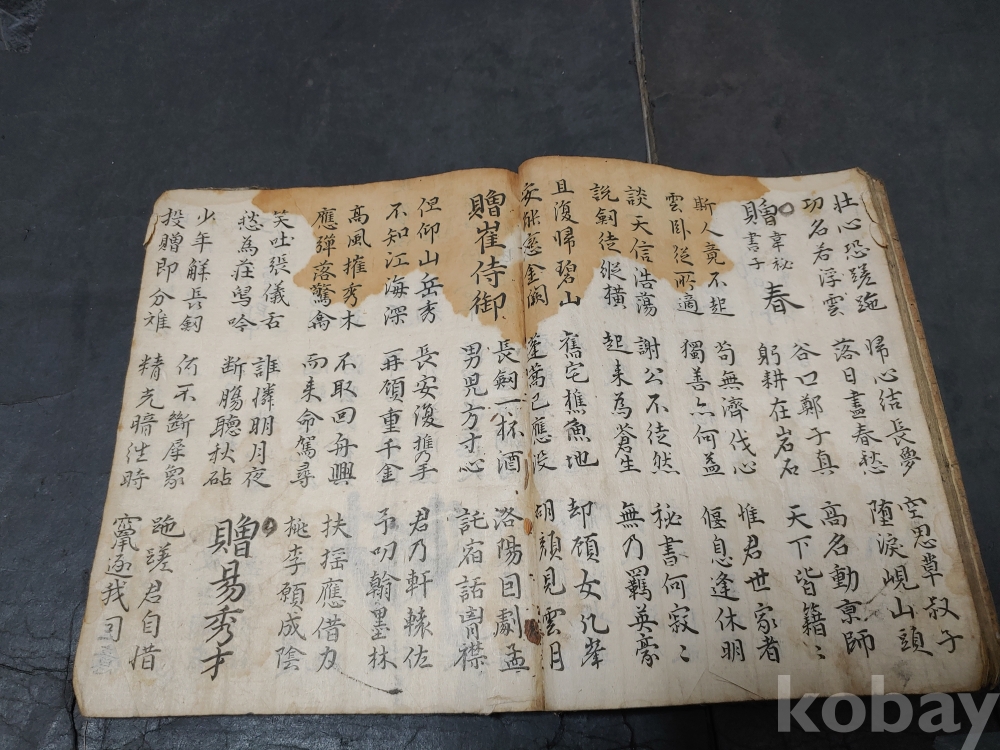 壯心恐蹉跎
功名若浮雲
歸心結長夢
落日盡春愁
空思草叔子
墮淚峴山頭
贈韋秘書子春
谷口鄭子真
躬耕在岩石
高名動京師
天下皆籍〻
斯人竟不起
雲卧從所適
苟無濟代心
獨善亦何益
惟君世家者
偃息逢休明
談天信浩蕩
說釼徒縱橫
謝公不徒然
起來為蒼生
秘書何寂〻
無乃羈英豪
且復歸碧山
安能戀金闕
舊宅樵漁地
蓬蒿已應没
却顧女几峯
胡顔見雲月
贈崔侍御
長釼一杯酒
男兒方寸心
洛陽因劇孟
託宿話胷襟
但仰山岳秀
不知江海深
長安復携手
再顧重千金
君乃軒轅佐
予叨翰墨林
高風摧秀木
應彈落驚禽
不取回舟興
而来命駕尋
扶搖應借力
桃李願成陰
笑吐張儀舌
愁為莊舃吟
誰憐明月夜
断膓聽秋砧
贈易秀才
少年解長釼
投贈即分難
何不斷犀象
精光暗往時
跎蹉君自惜
竄逐我
kobay